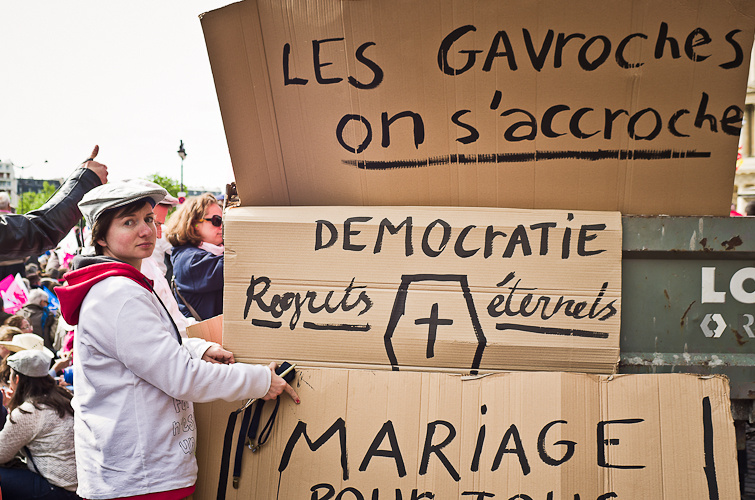 LES GAVroches
on s'accroche
DÉMOCRATIE
Regrets éternels
MARiAGE
POUR TOUS
LO
R